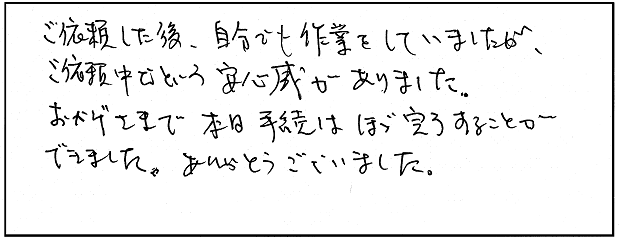 ご依頼した後、自分でも作業をしていましたが、
ご依頼中だという安心感がありました。
おかげさまで本日手続はほぼ完了することが
できました。ありがとうございました。